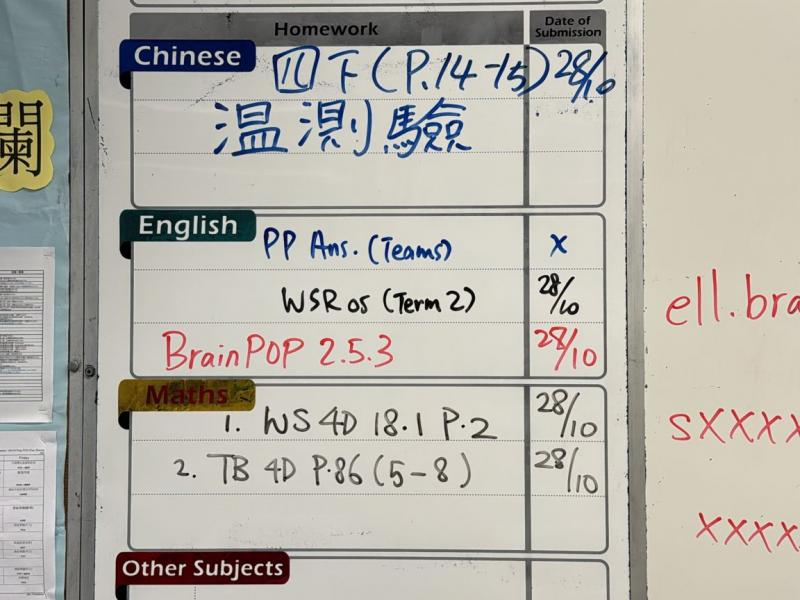 Homework
Date of Submission
Chinese
四下(P.14-15) 28/10
温測驗
English
PP Ans. (Teams) x
WSR os (Term 2) 28/10
BrainPOP 2.5.3 28/10
Maths
1. WS 4D 18.1 P.2 28/10
2. TB 4D P.86 (5-8) 28/10
Other Subjects
欄
ell.bra
sxxxx
xxxx